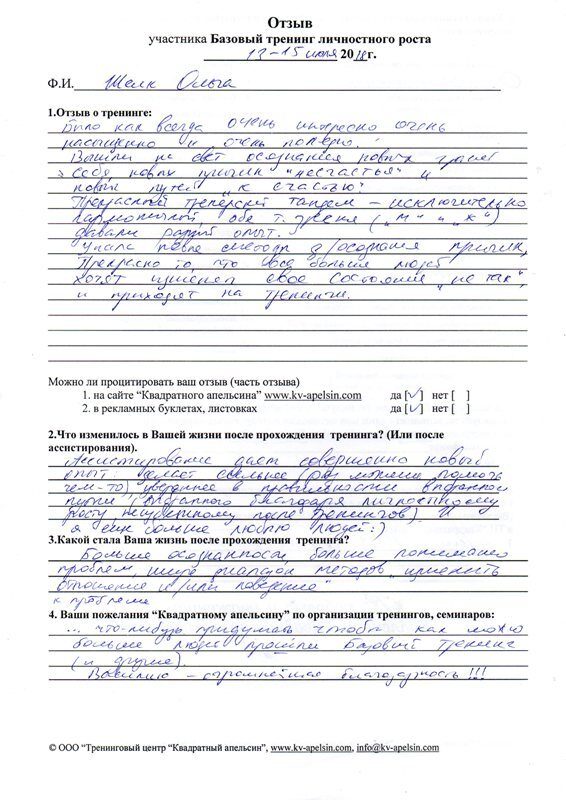 Отзыв
участника Базовый тренинг личностного роста
13-15 июля 2018г.
Ф.И. Шелк Ольга
1.Отзыв о тренинге:
Было как всегда очень интересно очень
насыщенно и очень полезно.
Вышли на свет осознания новых граней
себя, новых причин "несчастья" и
новых путей "к счастью".
Прекрасный тренерский тандем - исключительно
гармоничный, обе т. зрения ("м" и "ж")
давали разный опыт.
осознания причин,
Прекрасно то, что все больше людей
хотят изменен свое состояние "не так",
и приходят на тренинги.
Можно ли процитировать ваш отзыв (часть отзыва)
1. на сайте “Квадратного апельсина” www.kv-apelsin.com да [✓] нет [ ]
2. в рекламных буклетах, листовках да [✓] нет [ ]
2.Что изменилось в Вашей жизни после прохождения тренинга? (Или после
ассистирования).
Ассистирование дает совершенно новый
опыт делает сильнее (раз можешь помочь
чем-то), увереннее в правильности выбранного
пути (выбранного благодаря личностному
росту после тренингов). И
я еще больше люблю людей :)
3.Какой стала Ваша жизнь после прохождения тренинга?
Больше осознанности, больше понимания
проблем, шире диапазон методов "изменить
отношение и/или поведение"
к проблеме
4. Ваши пожелания “Квадратному апельсину” по организации тренингов, семинаров:
... что-нибудь придумать чтобы как можно
больше людей прошли базовый тренинг
(и другие).
Василию - огромнейшая благодарность!!!
© ООО “Тренинговый центр “Квадратный апельсин”, www.kv-apelsin.com, info@kv-apelsin.com